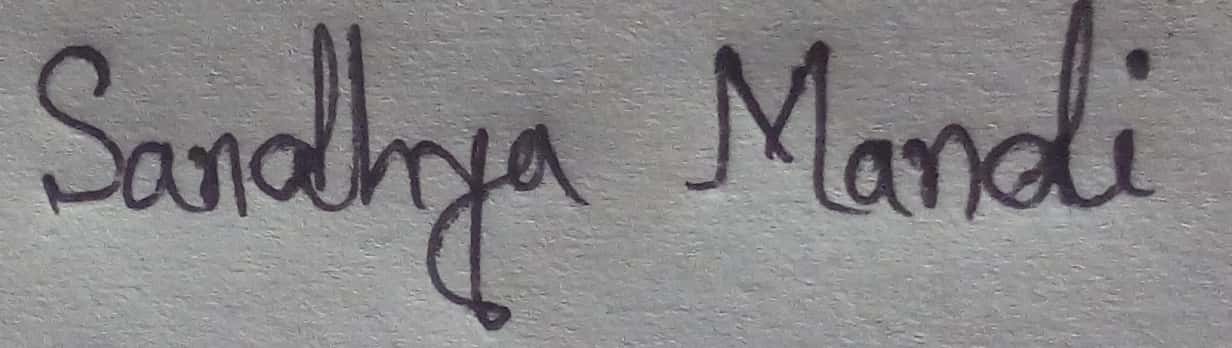 Sandhya Mandi